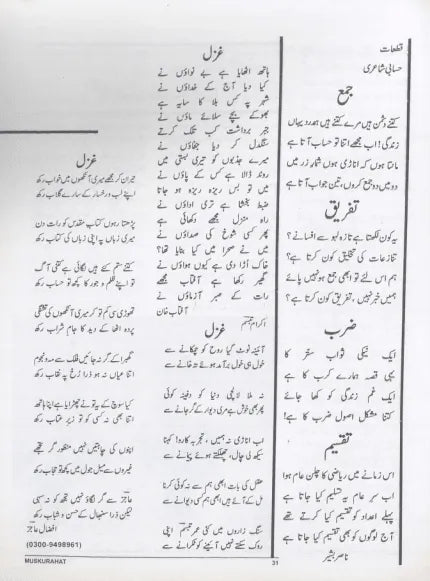 قطعات
حسابی شاعری
جمع
کتنے دشمن ہیں مرے کتنے ہیں ہمدرد یہاں
زندگی! اب مجھے اتنا تو حساب آتا ہے
مانتا ہوں کہ اناڑی ہوں شمار زر میں
دو میں دو جمع کروں، تین جواب آتا ہے
تفریق
یہ کون لکھتا ہے تازہ لہو سے افسانے؟
تنازعات کی تخلیق کون کرتا ہے؟
ہم اس لئے تو ابھی جمع ہو نہیں پائے
ہمیں خبر نہیں، تفریق کون کرتا ہے؟
ضرب
ایک نیکی ثواب ستر کا
یہی قصہ ہمارے کرب کا ہے
ایک غم زندگی کو کھا جائے
کتنا مشکل اصول ضرب کا ہے!
تقسیم
اس زمانے میں ریاضی کا چلن عام ہوا
اب سر عام یہ تسلیم کیا جاتا ہے
پہلے اعداد کو تقسیم کیا کرتے تھے
آج لوگوں کو بھی تقسیم کیا جاتا ہے
ناصر بشیر
غزل
ہاتھ اٹھایا ہے بے نواؤں نے
کیا دیا آج کے خداؤں نے
شہر پہ کس بلا کا سایہ ہے
بھوکے بچے سلائے ماؤں نے
جبر برداشت کب تلک کرتے
سنگدل کر دیا جفاؤں نے
میرے جذبوں کو تیری بستی میں
روند ڈالا ہے کس کے پاؤں نے
میں تو بس ریزہ ریزہ ہو جاتا
ضبط بخشا ہے تری اداؤں نے
راہ منزل مجھے دکھائی ہے
پھر کسی شوخ کی صداؤں نے
میں نے صحرا میں کیا بنایا تھا؟
خاک اڑا دی ہے کیوں ہواؤں نے
گھیر رکھا ہے آفتاب مجھے
رات کے صبر آزماؤں نے
آفتاب خان
غزل
اکرام تبسم
آئینہ ٹوٹ گیا روح کو چپکانے سے
خول ہی خول برآمد ہوئے تہ خانے سے
نہ ملا لالچی دنیا کو دفینہ کوئی
پھر بھی خوش ہے مری دیوار کے گر جانے سے
اب اناڑی نہ ہمیں، تجربہ کارو! کہنا
سیکھ لی چال، چھلکتے ہوئے پیمانے سے
عقل کی بات ابھی ہم سے نہ کوئی کرنا
مل کے آئے ہیں ابھی ہم کسی دیوانے سے
سنگ زاروں میں کئی عمر تبسم اپنی
روک سکتے نہیں آئینے کو ٹکرانے سے
غزل
حیران کر مجھے میری آنکھوں میں خواب رکھ
اپنے لب و رخسار کے سارے گلاب رکھ
پڑھتا رہوں کتاب مقدس کو رات دن
میری زباں پہ اپنی زباں کی کتاب رکھ
کتنے ستم سہے ہیں لگائی ہے کتنی آگ
تو اپنے ظلم و جور کا کچھ تو حساب رکھ
تھوڑی سی کم تو کر میری آنکھوں کی تشنگی
پردہ اٹھا کے دید کا جام شراب رکھ
گھبرا کے گر نہ جائیں فلک سے مہ و نجوم
اتنا عیاں نہ ہو ذرا رخ پہ نقاب رکھ
کیا سوچ کے یہ تو نے چھڑایا ہے اپنا ہاتھ
اتنا بھی نہ کسی کو تو زیر عتاب رکھ
اپنوں کی چاہتیں نہیں منظور گر تجھے
غیروں سے میل جول میں کچھ تو حجاب رکھ
عاجز سے گر لگاؤ نہیں تجھ کو نہ سہی
لیکن ذرا سنبھال کے حسن و شباب رکھ
افضال عاجز
(0300-9498961)
MUSKURAHAT
31